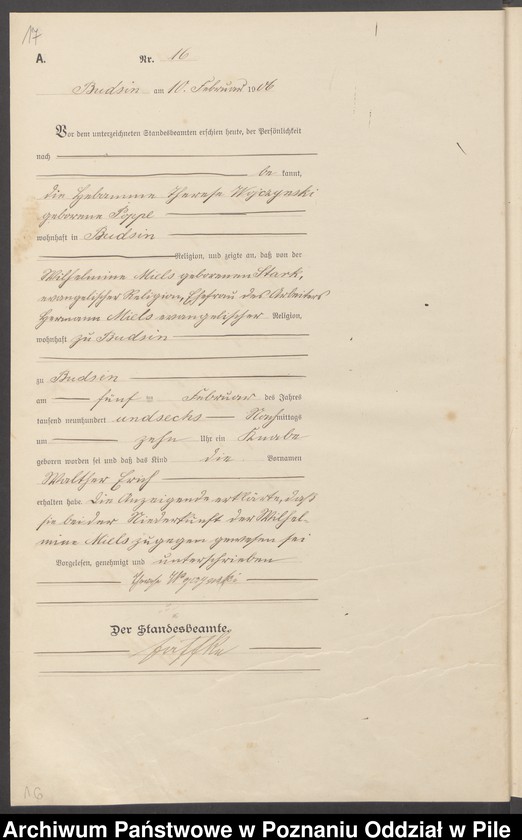 17
A. Nr. 16
Budsin am 10. Februar 1906
Vor dem unterzeichneten Standesbeamten erschien heute, der Persönlichkeit
nach
be kannt,
die Hebamme Therese Wojczynski
geborene Poppe
wohnhaft in Budsin
Religion, und zeigte an, daß von der
Wilhelmine Miels geborenen Stark,
evangelischer Religion, Ehefrau des Arbeiters
Hermann Miels evangelischer Religion,
wohnhaft zu Budsin
zu Budsin
am fünf Februar des Jahres
tausend neunhundert und sechs Nachmittags
um zehn Uhr ein Knabe
geboren worden sei und daß das Kind die Vornamen
Walther Erich
erhalten habe. Die Anzeigende erklärte, daß
sie bei der Niederkunft der Wilhel-
mine Miels zugegen gewesen sei
Vorgelesen, genehmigt und unterschrieben
Der Standesbeamte.
16
Archiwum Państwowe w Poznaniu Oddział w Pile